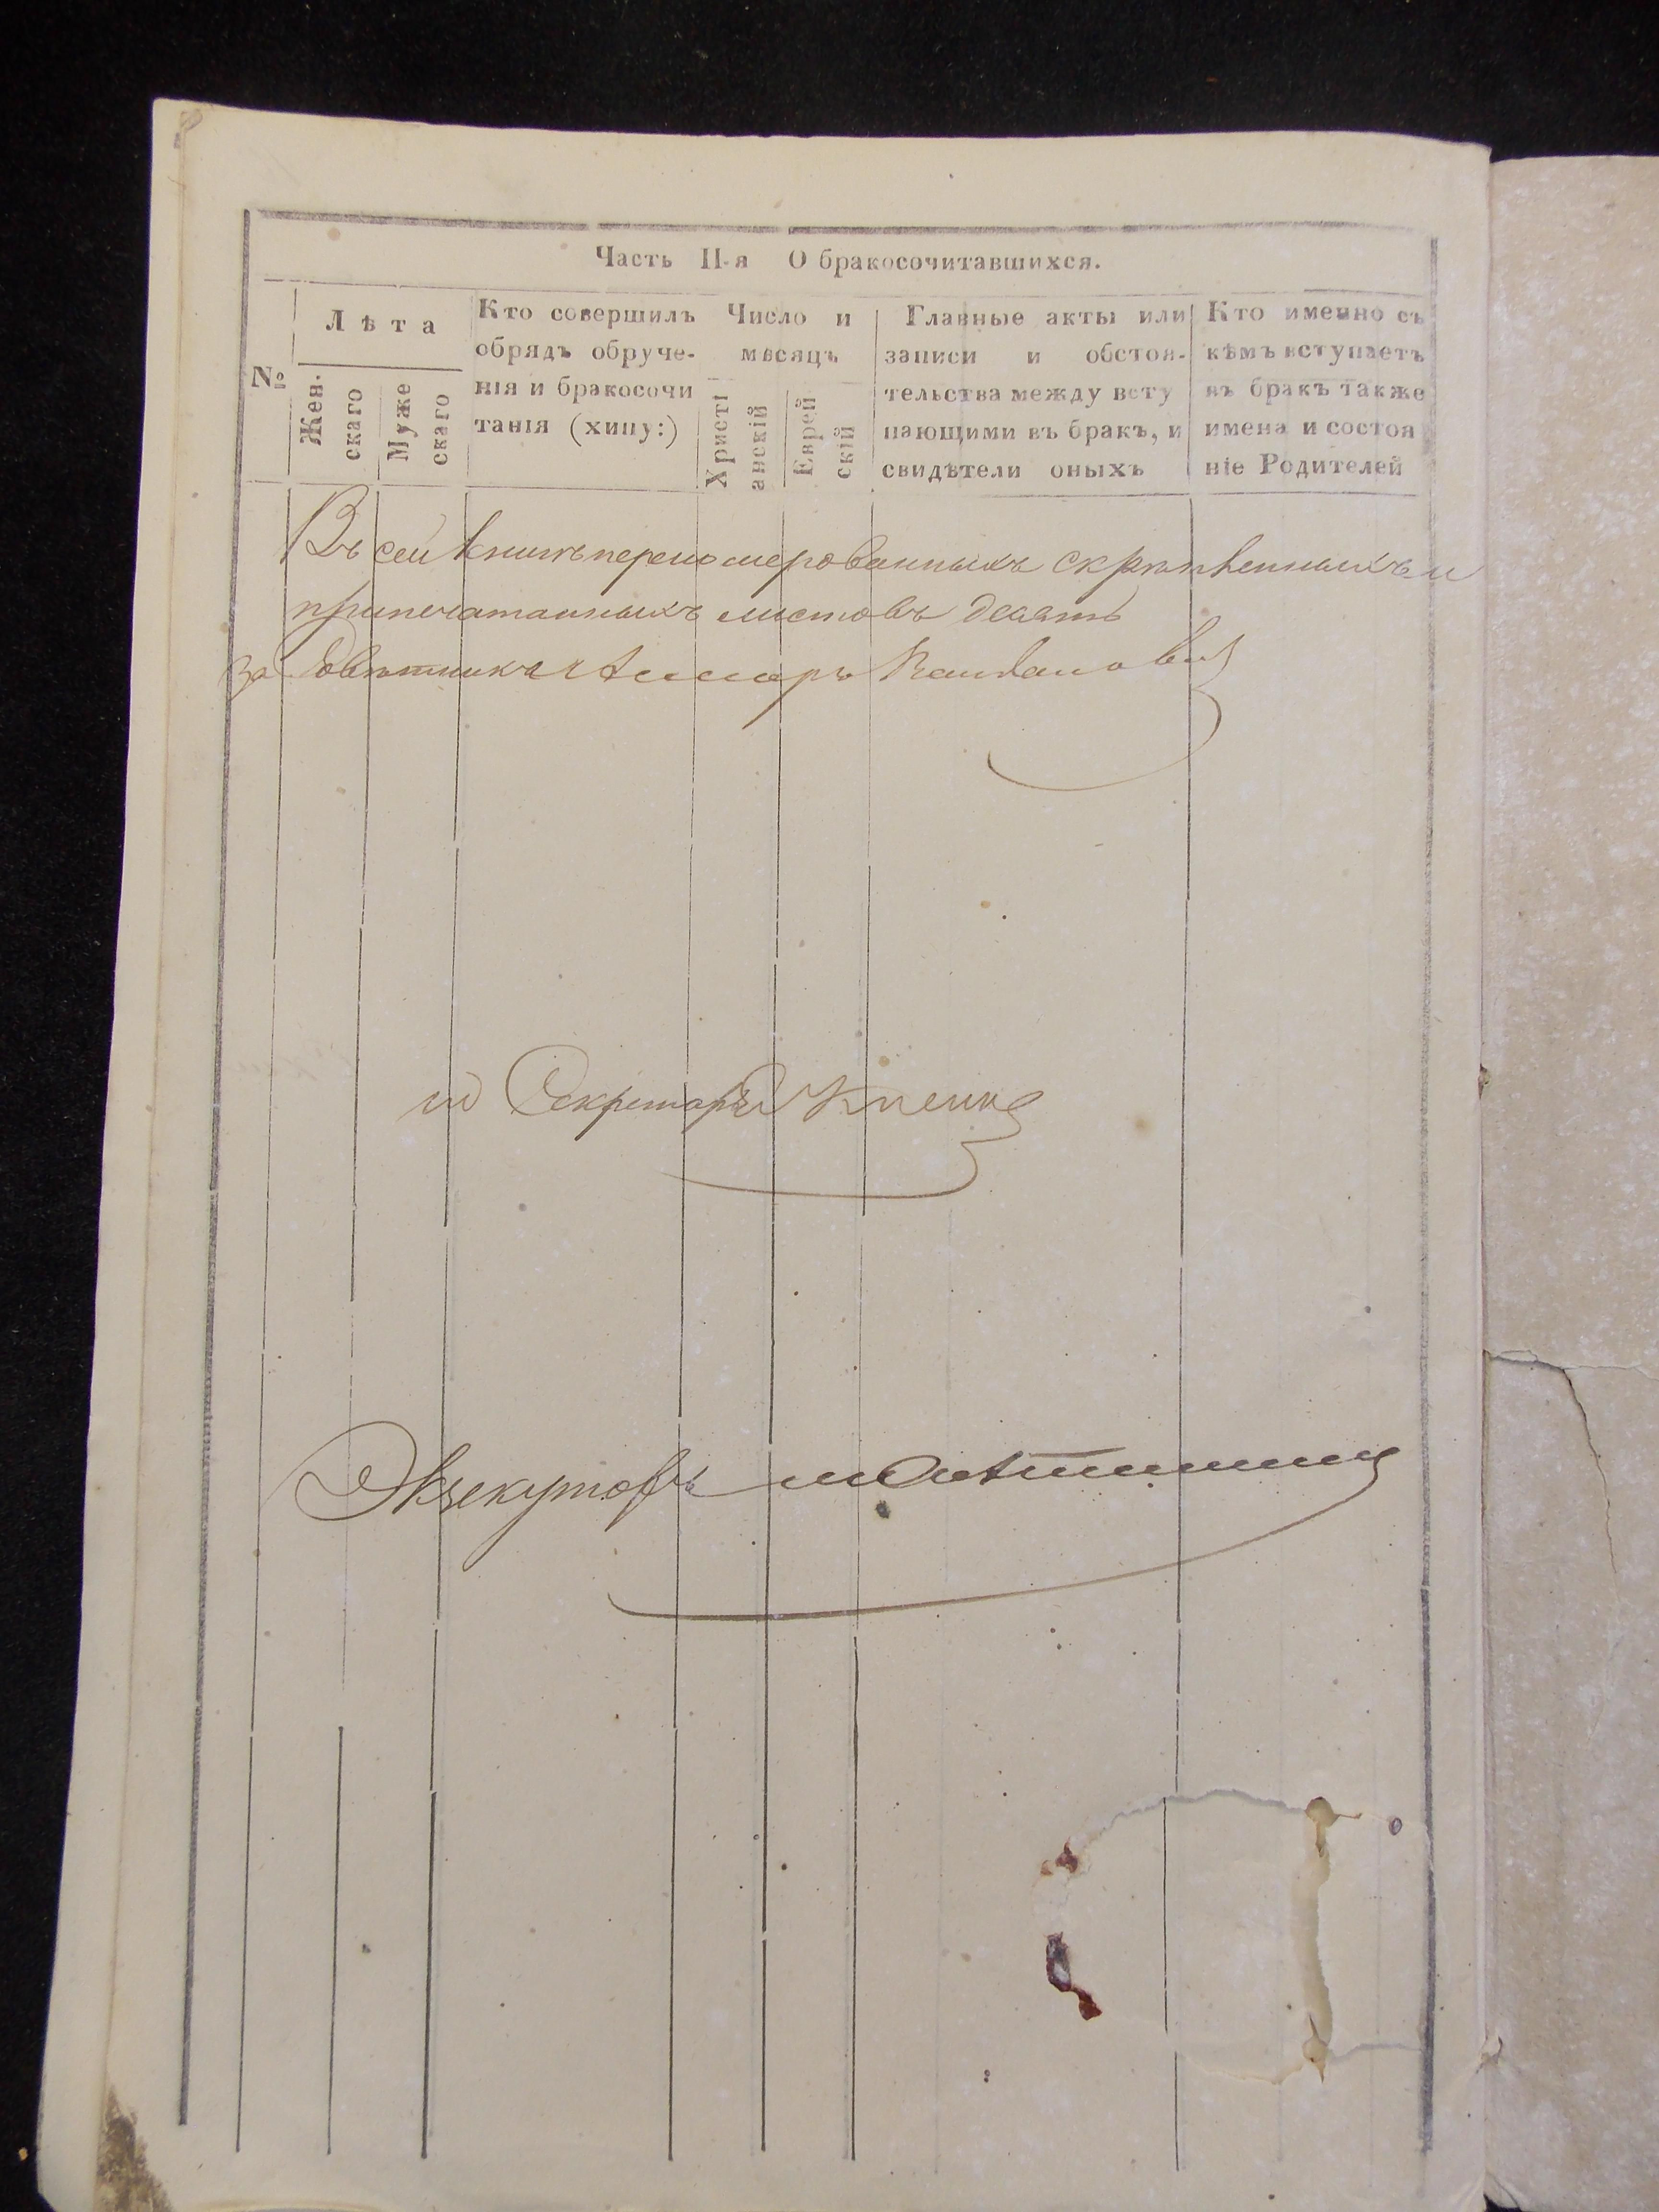 Часть II-я О бракосочитавшихся.
№
Лѣта
Жен-
скаго
Муже
скаго
Кто совершилъ
обрядъ обруче-
нія и бракосочи
танія (хипу:)
Число и
мѣсяцъ
Христі
анскій
Еврей
скій
Главные акты или
записи и обстоя-
тельства между всту
пающими въ бракъ, и
свидѣтели оныхъ
Кто именно съ
кѣмъ вступаетъ
въ бракъ также
имена и состоя
ніе Родителей
Въ сей книгѣ перенумерованныхъ скрѣпленныхъ и
припечатанныхъ листовъ десять
За Совѣтника Ассесоръ
Секретарь
Экзекуторъ